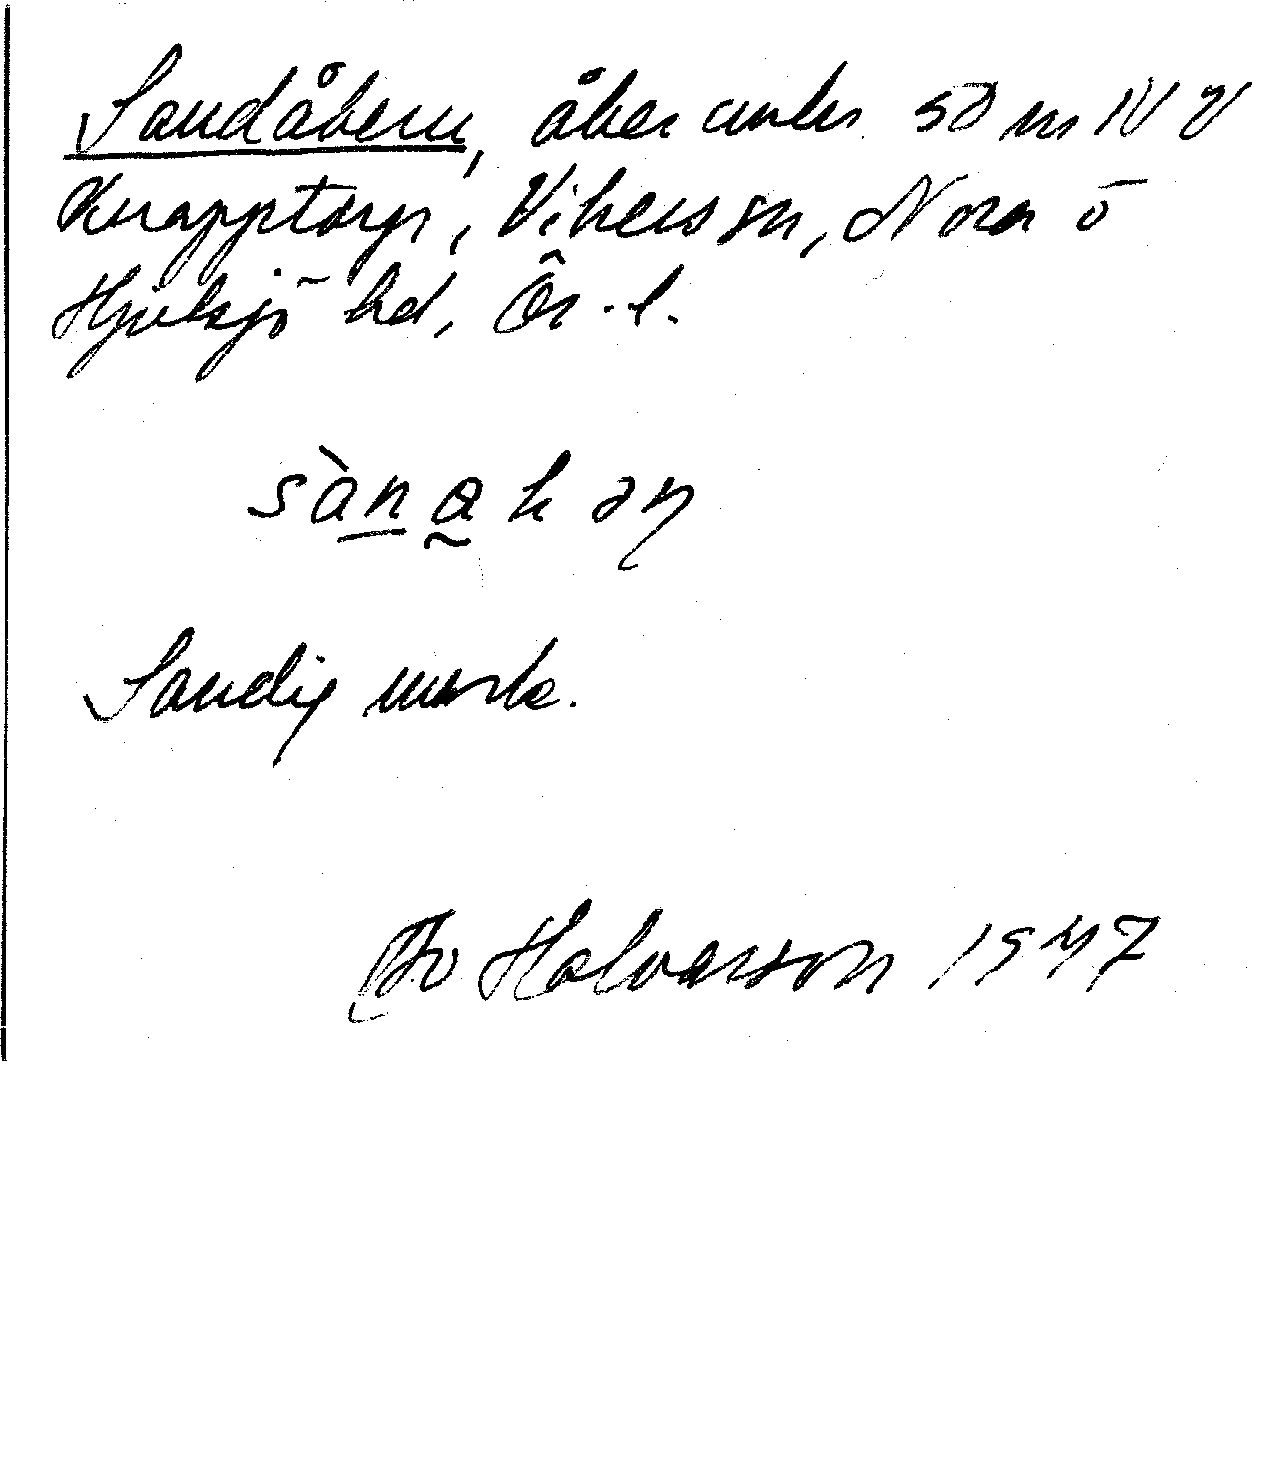 Sandåkern, åker under 50 m NV
Knapptorp, Vikers sn, Nora o
Hjulsjö hd, Ör. l.
sànakəṇ
Sandig mark.
Bo Halvarsson 1947